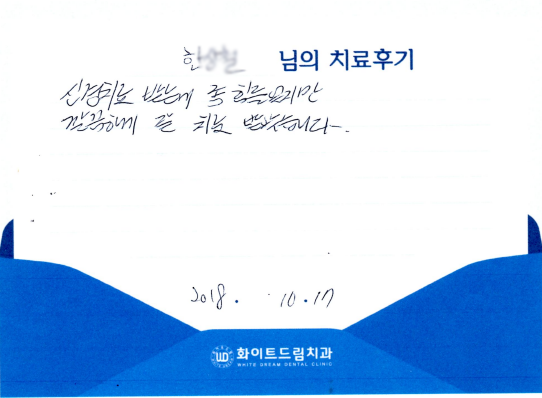 한 님의 치료후기
신경치료 받는게 좀 힘들었지만
깔끔하게 잘 치료 받았습니다.
2018. 10. 17
화이트드림치과
WHITE DREAM DENTAL CLINIC